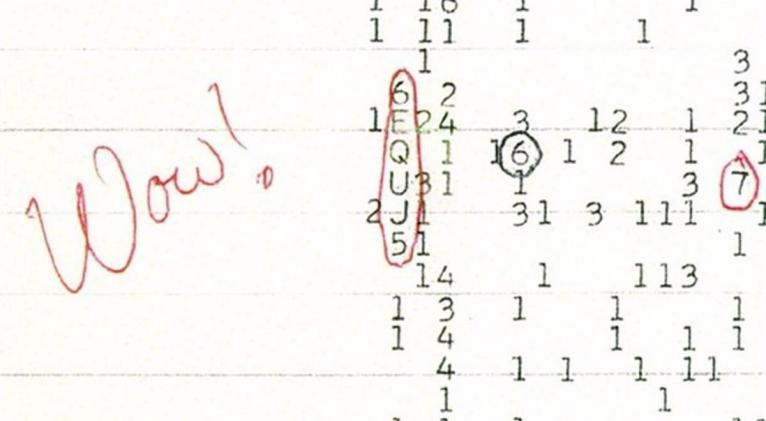 1 16 1 1
1 11 1 1
1 3
6 2 31
1 E24 3 12 1 21
Wow!
Q 1 16 1 2 1 1
U31 1 3 7
2 J1 31 3 111 1
51 1
14 1 113
1 3 1 1 1
1 4 1 1 1
4 1 1 1 11
1 1